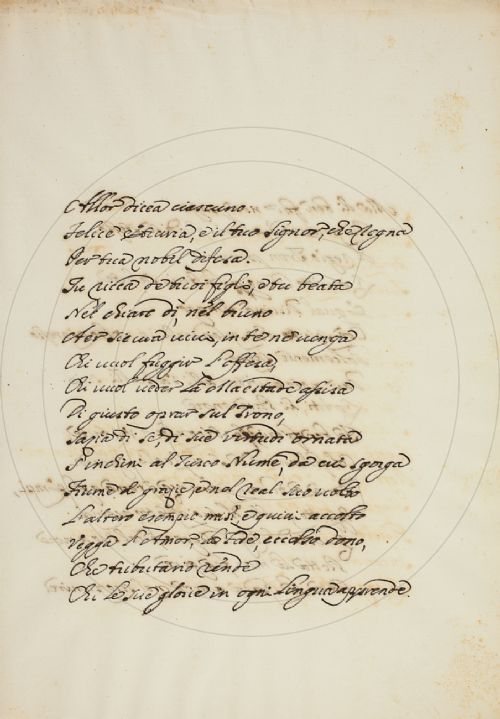 Allor dicea ciascuno:
Felice Etruria, e il tuo Signor, che Regna
Per tua nobil difesa.
Tu ricca de tuoi figli, e tu beata
Nel chiaro dì, nel bruno
Ater sicura vivi, in te ne venga
Chi vuol fuggir l'offesa,
Chi vuol veder la Maestade assisa
Di giusto oprar sul Trono,
Sapia di se, di sue virtudi ornata
S'inchini al Tosco Nume, da cui sgorga
Fiume di grazie, e nel real suo volto
L'altero esempio miri, e quivi accolto
Vegga l'Amor, la Fede, eccelso dono,
Che tributario rende
Chi le sue glorie in ogni lingua apprende.